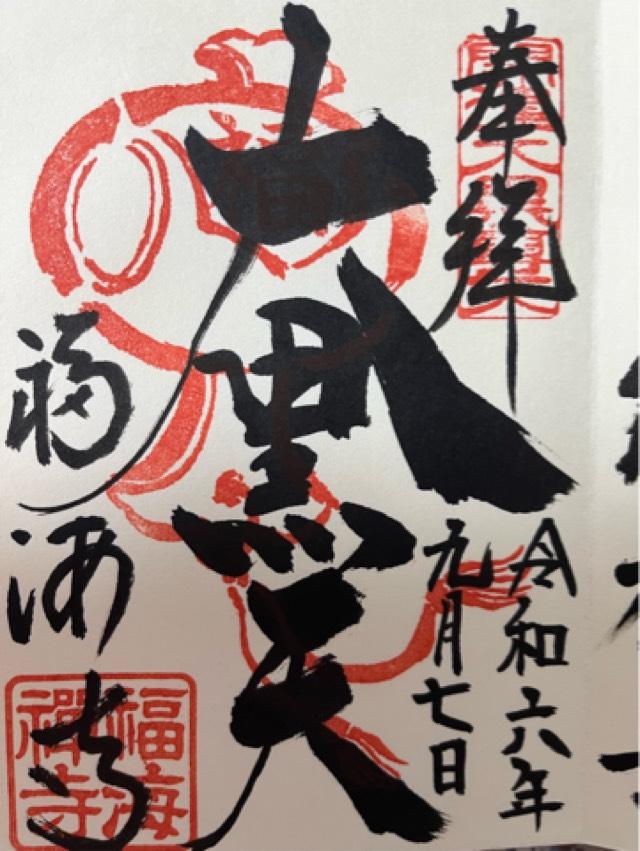 奉拝
令和六年
九月七日
大黒天
福海寺
福海
禅寺